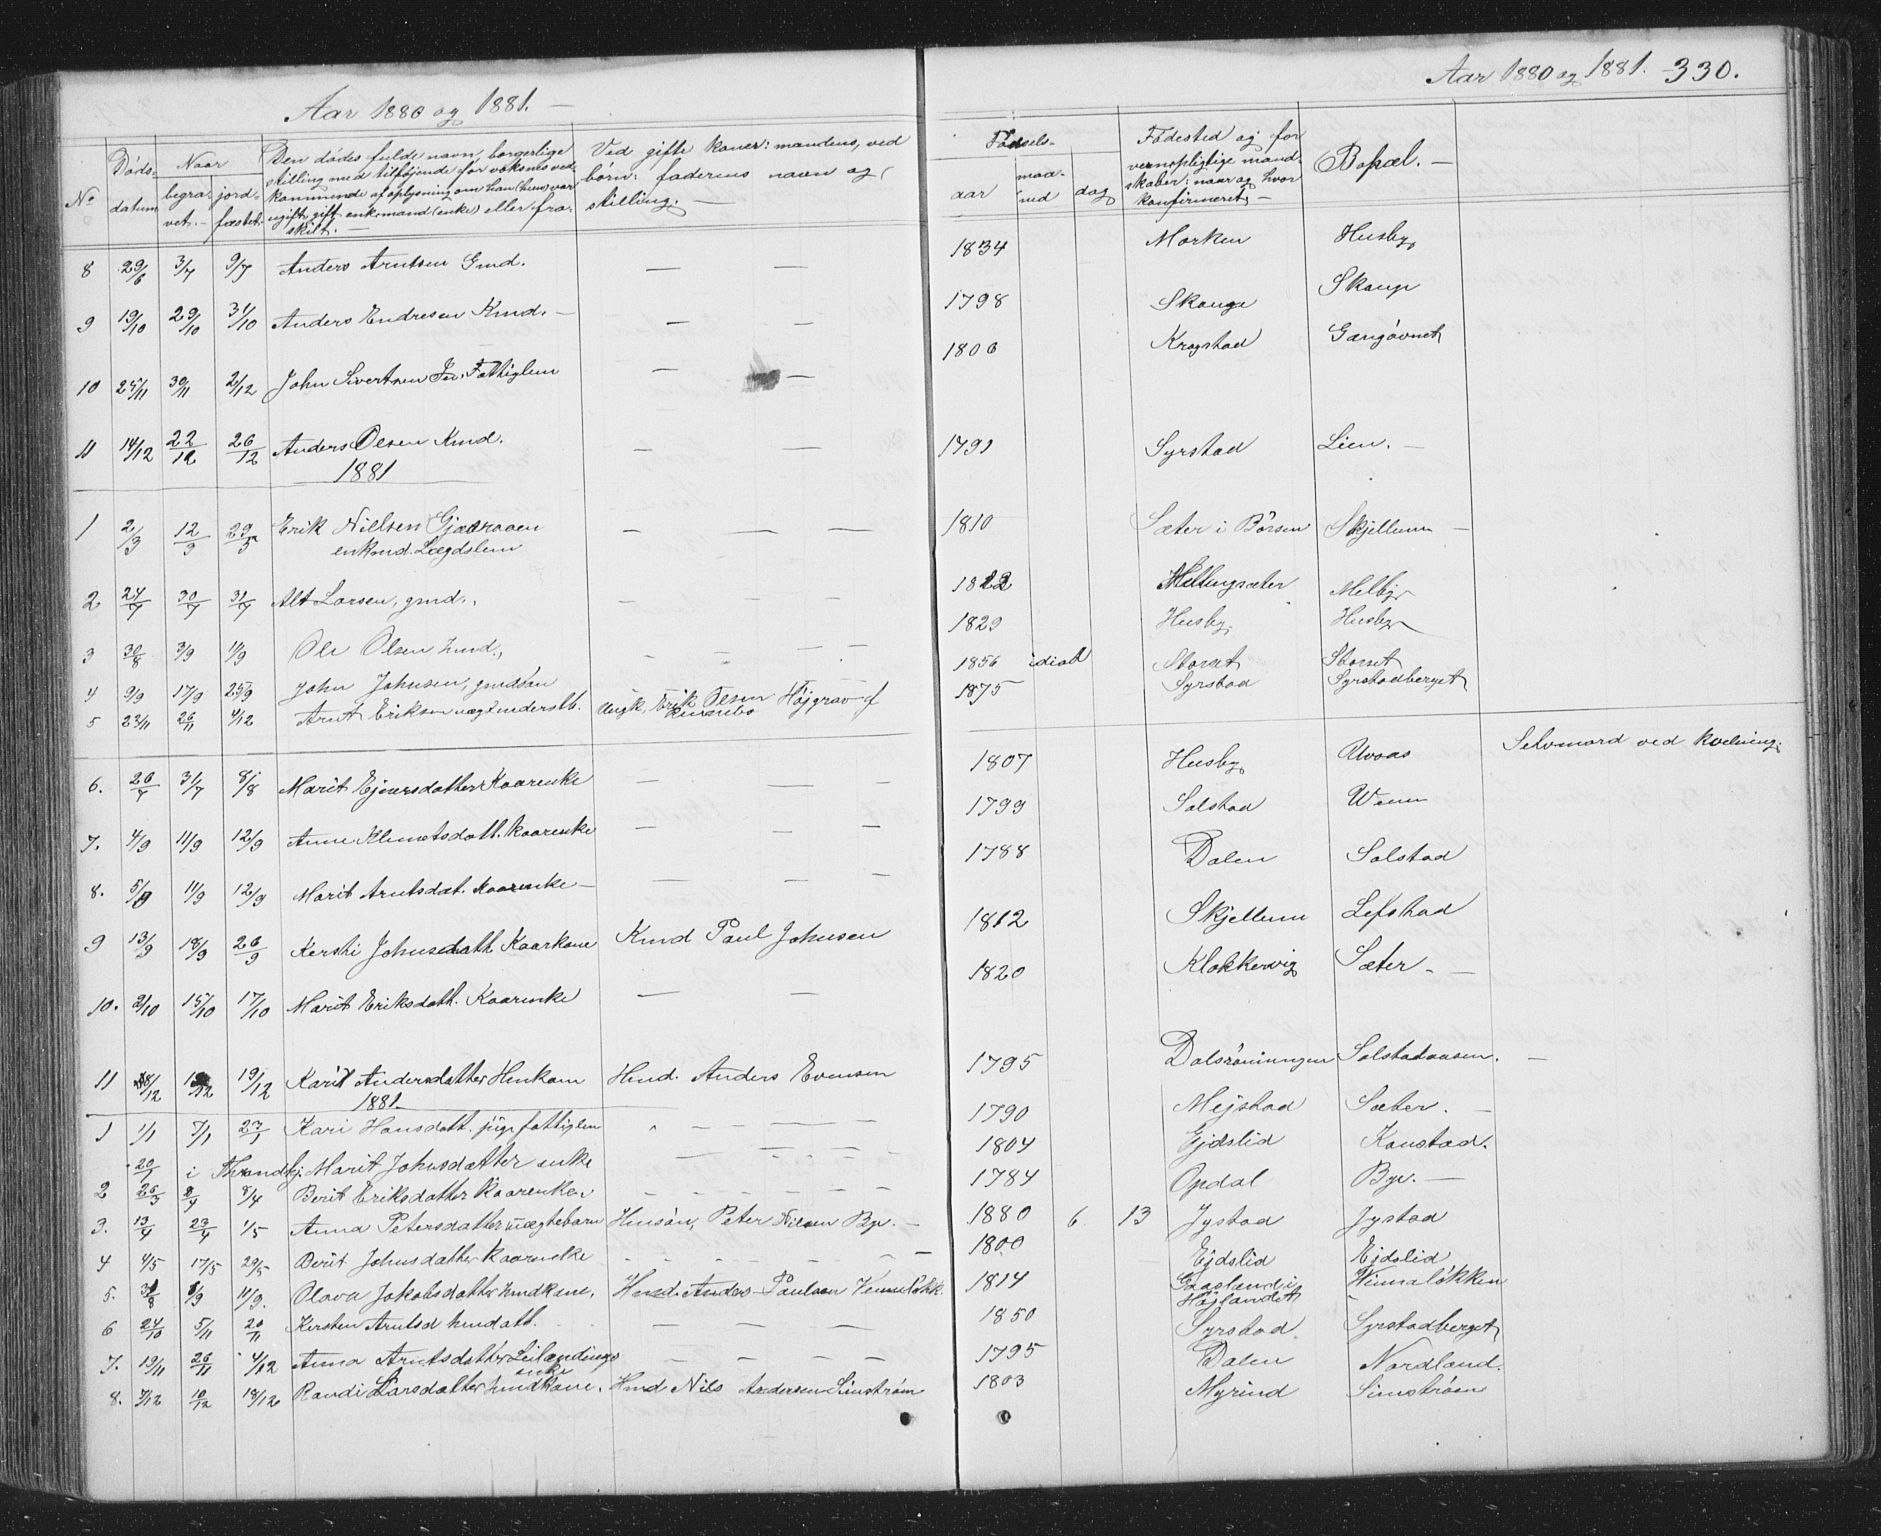 Aar 1880 og 1881. —
Aar 1880 og 1881. 330.
No
Døds-
datum
Naar
begra-
vet.
jord-
fæstet
Den dødes fulde navn, borgerlige
stilling med tilføiende for voksnes ved
kommende af oplysning om han (hun) var
ugift, gift, enkemand (enke) eller fra-
skilt. —
Ved gifte koner: mandens, ved
børn: faderens navn og
stilling. —
Fødsels-
aar
maa-
ned
dag
Fødested og for
vernepligtige mand-
skaber: naar og hvor
konfirmeret —
Bopæl. —
8 29/6 3/7 9/7 Anders Arntsen Gmd. — — 1834 Morken Husby
9 19/10 29/10 31/10 Anders Endresen Kmd. — — — 1798 Skauge Skaup
10 25/11 30/11 2/12 John Sivertsen Fattiglem — — 1806 Krogstad
11 14/12 22/12 26/12 Anders Olsen Kmd. — — 1791 Syrstad Lien. —
1881
1 2/3 12/3 29/3 Erik Nielsen — — — 1810 Sæter i Børsen Skjellum —
enkmd. Lægdslem
2 24/7 30/7 31/7 Alt Larsen, gmd. — — — 1822 Melby
3 30/8 3/9 11/9 Ole Olsen hmd., — — — — 1829 Husby Husby
4 9/9 17/9 25/9 John Johnsen, gmdsøn 1856 idiot Storset Storset
5 23/11 26/11 4/12 Arnt Eriksen uægte Ungk. Erik Olsen Højgrav 1875 Syrstad Syrstadberget
6. 26/7 31/7 8/8 Marit Ejnersdatter Kaarenke — — — 1807 Husby Selvmord ved kvelning.
7. 4/9 11/9 12/9 Anne Klemetsdatt. Kaarenke — — — 1799 Solstad
8. 5/9 11/9 12/9 Marit Arntsdat. Kaarenke — — — — 1788 Dalen Solstad
9 13/9 18/9 26/9 Kersti Johnsdatt. Kaarkone Kmd Paul Johnsen 1812 Skjellum Lefstad
10. 2/10 15/10 17/10 Marit Eriksdatt. Kaarenke — — 1820 Klokkervig Sæter. —
11 /12 /12 19/12 Karit Andersdatter Hmkone Hmd. Anders Evensen 1795 Solstadaasen. —
1881
1 1/1 7/1 23/1 Kari Hansdatt. pige fattiglem — — — 1790 Mejstad Sæter. —
20/1 i Throndhj. Marit Johnsdatter enke — — — — 1804 Ejdslid Kaustad.
2 26/3 2/4 8/4 Berit Eriksdatter Kaarenke — — — — — 1784 Opdal By. —
3. 13/4 23/4 1/5 Anna Petersdatter uægtebarn Hmsøn, Peter Nilsen By. — 1880 6 13 Jystad Jystad
4 4/5 17/5 29/5 Berit Johnsdatter Kaarenke — — — — — 1800 Ejdslid Ejdslid
5. 31/8 6/9 11/9. Olava Jakobsdatter hmdkone. Hmd. Anders Paulsen 1814 Højlandet
6 24/10 5/11 20/11 Kersten Arntsd hmdatt. — — — 1850 Syrstad Syrstadberget
7. 19/11 26/11 4/12 Anna Arntsdatter Leilændings — — — — 1795 Dalen Nordland.
enke
8. 7/12 10/12 18/12 Randi Larsdatter hmdkone. Hmd Nils Andersen Simstrøen 1803 Myrind Simstrøen